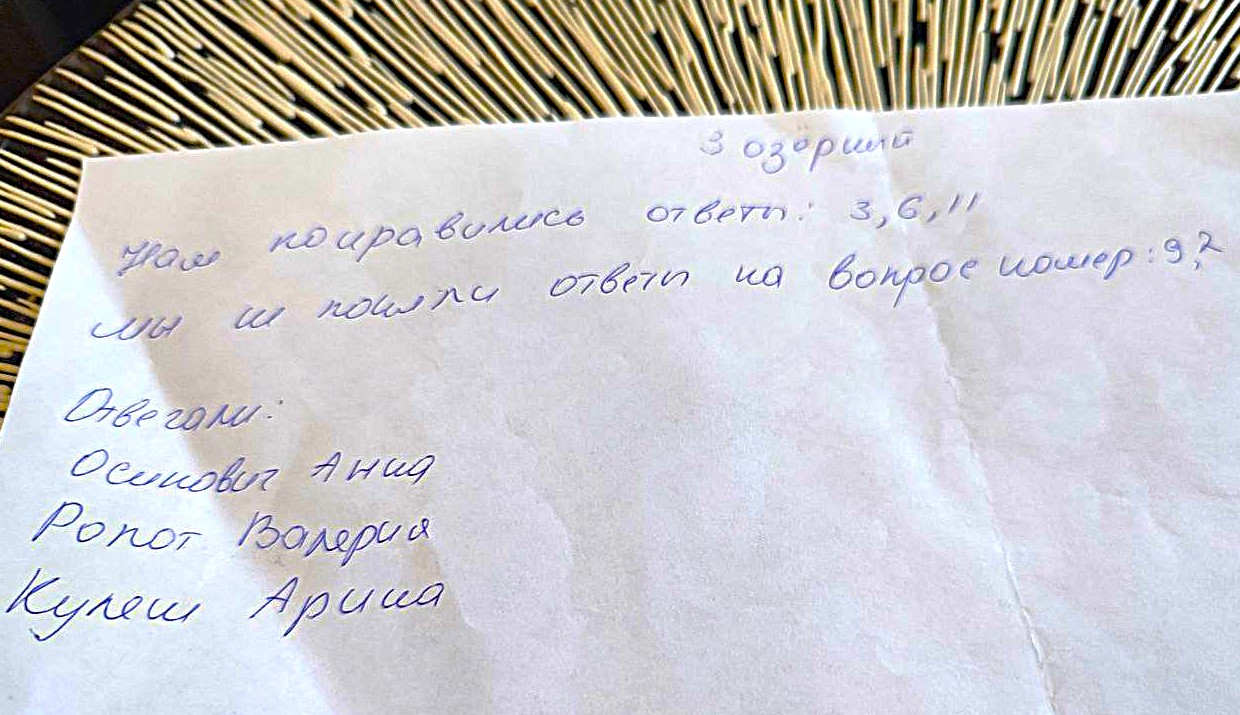 3 озёрный
Нам понравились ответы: 3, 6, 11
мы не поняли ответы на вопрос номер: 9,2
Отвечали:
Осинович Анна
Ропот Валерия
Кулеш Арина